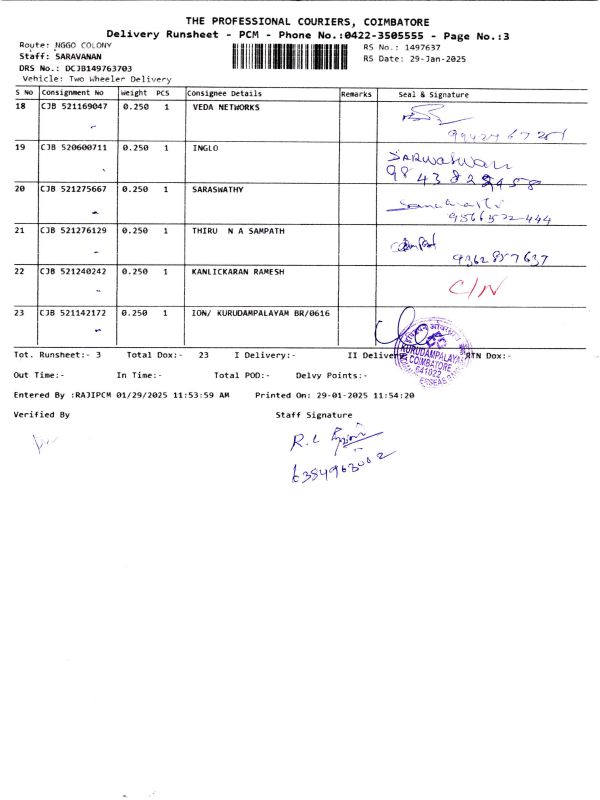 THE PROFESSIONAL COURIERS, COIMBATORE
Delivery Runsheet - PCM - Phone No.:0422-3505555 - Page No.:3
Route: NGGO COLONY
RS No.: 1497637
Staff: SARAVANAN
RS Date: 29-Jan-2025
DRS No.: DCJB149763703
Vehicle: Two Wheeler Delivery
S No Consignment No Weight PCS Consignee Details Remarks Seal & Signature
18 CJB 521169047 0.250 1 VEDA NETWORKS
19 CJB 520600711 0.250 1 INGLO SARWASWAN
20 CJB 521275667 0.250 1 SARASWATHY
9566572444
21 CJB 521276129 0.250 1 THIRU N A SAMPATH
9362887637
22 CJB 521240242 0.250 1 KANLICKARAN RAMESH C/N
23 CJB 521142172 0.250 1 ION/ KURUDAMPALAYAM BR/0616
KURUDAMPALAYAM
COIMBATORE
641022
Tot. Runsheet:- 3 Total Dox:- 23 I Delivery:- II Delivery RTN Dox:-
Out Time:- In Time:- Total POD:- Delvy Points:-
Entered By :RAJIPCM 01/29/2025 11:53:59 AM Printed On: 29-01-2025 11:54:20
Verified By Staff Signature
R.L
6384963002